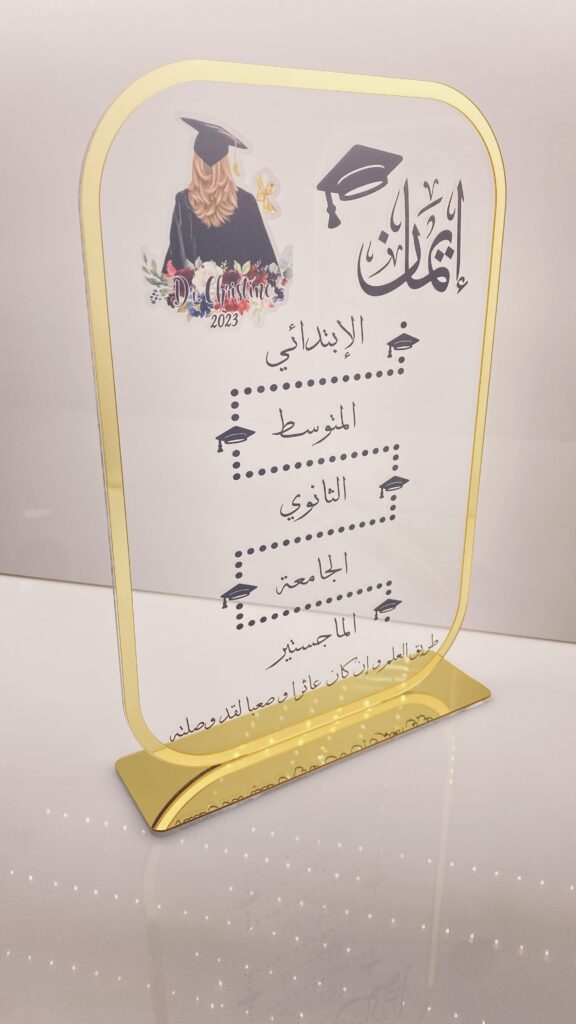 إيمان
Dr. Christine
2023
الإبتدائي
المتوسط
الثانوي
الجامعة
الماجستير
طريق العلم وإن كان عاثرا وصعبا لقد وصلته